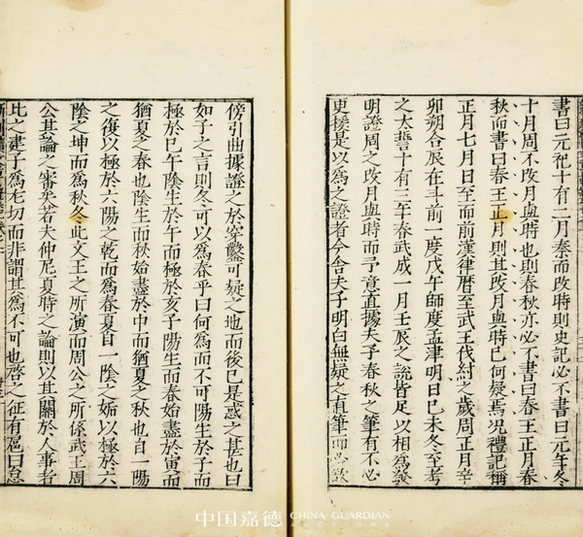 書曰元祀十有二月秦而改時則史記必不書曰元年冬
十月周不改月與時也則春秋亦必不書曰春王正月春
秋而書曰春王正月則其改月與時已何疑焉况禮記稱
正月七月日至而前漢律曆至武王伐紂之歲周正月辛
卯朔合辰在斗前一度戊午師度孟津明日己未冬至考
之太誓十有三年春武成一月壬辰之說皆足以相為發
明證周之改月與時而予意直據夫子春秋之筆有不必
更援是以為之證者今舍夫子明白無疑之直筆而必欲
傍引曲據證之於穿鑿可疑之地而後已是惑之甚也曰
如子之言則冬可以為春乎曰何為而不可陽生於子而
極於巳午陰生於午而極於亥子陽生而春始盡於寅而
猶夏之春也陰生而秋始盡於申而猶夏之秋也自一陽
之復以極於六陽之乾而為春夏自一陰之姤以極於六
陰之坤而為秋冬此文王之所演而周公之所係武王周
公其論之審矣若夫仲尼夏時之論則以其關於人事者
比之建子為尤切而非謂其為不可也啓之征有扈曰怠
中国嘉德 CHINA GUARDIAN
AUCTIONS